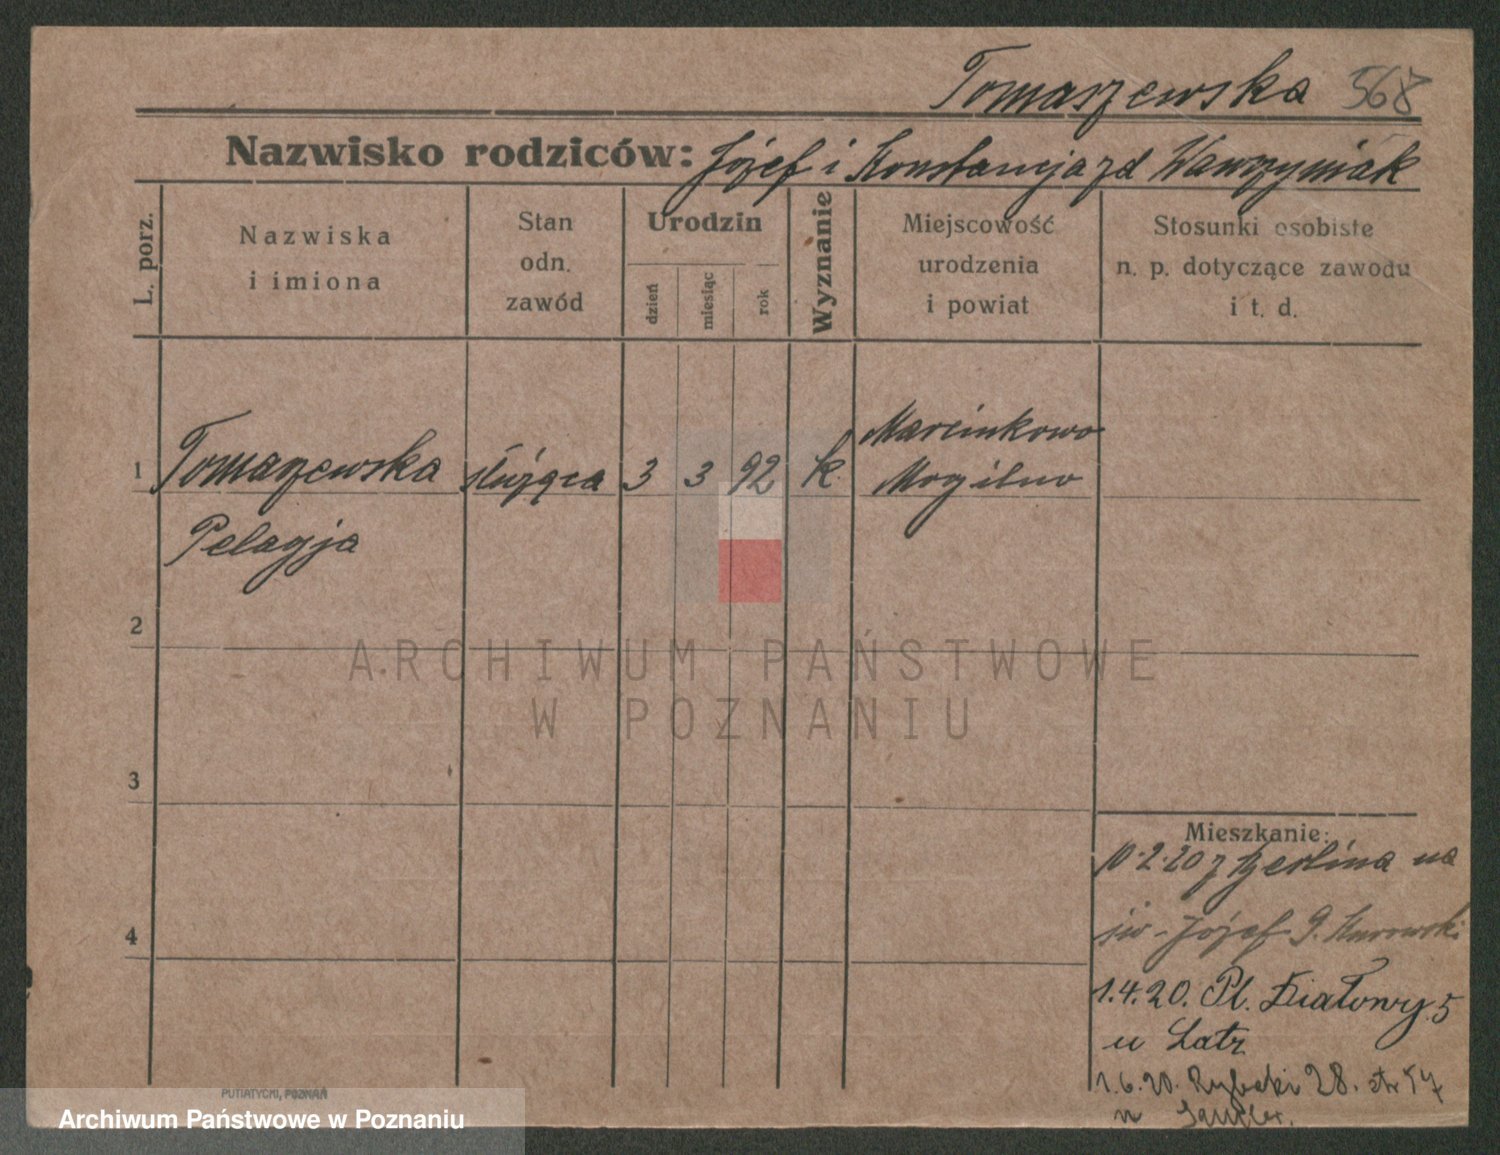 Tomaszewska 568
Nazwisko rodziców: Józef i Konstancja zd Wawrzyniak
L. porz.
Nazwiska
i imiona
Stan
odn.
zawód
Urodzin
dzień
miesiąc
rok
Wyznanie
Miejscowość
urodzenia
i powiat
Stosunki osobiste
n. p. dotyczące zawodu
i t. d.
1 Tomaszewska służąca 3 3 92 k. Marcinkowo
Mogilno
Pelagja
2
ARCHIWUM PAŃSTWOWE
W POZNANIU
3
4
Mieszkanie:
10.2.20 z Berlina na
św. Józef 9.
1.4.20. Pl. Działowy 5
u Latz
1.6.20. Rybaki 28. str
u
PUTIATYCKI, POZNAŃ
Archiwum Państwowe w Poznaniu